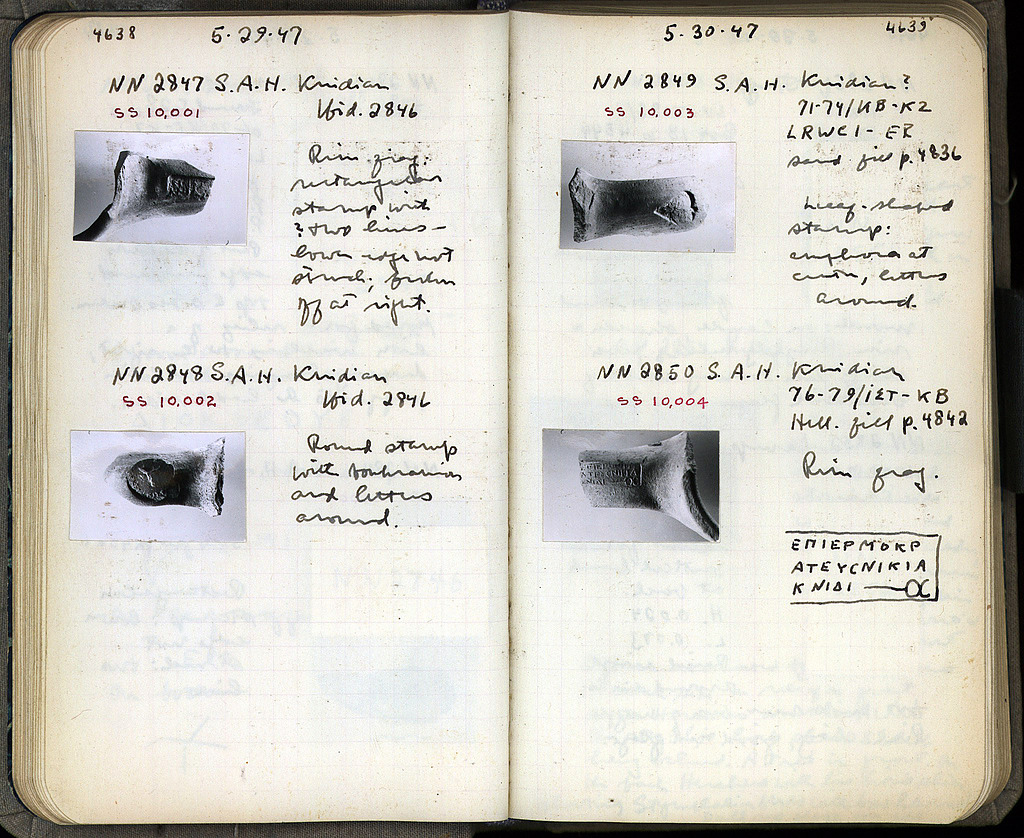 4638
5-29-47
NN 2847 S.A.H. Knidian
SS 10,001
Ibid. 2846
Rim frag.
rectangular
stamp with
? two lines -
lower edge not
struck; broken
off at right.
NN 2848 S.A.H. Knidian
SS 10,002
Ibid. 2846
Round stamp
with
and letters
around.
5-30-47
4639
NN 2849 S.A.H. Knidian?
SS 10,003
71-74/ΚΒ-Κ2
LRWC1-ER
sand fill p. 4836
Leaf-shaped
stamp:
amphora at
center, letters
around.
NN 2850 S.A.H. Knidian
SS 10,004
76-79/ΙΣΤ-ΚΒ
Hell. fill p. 4842
Rim frag.
ΕΠΙΕΡΜΟΚΡ
ΑΤΕΥCΝΙΚΙΑ
ΚΝΙΔΙ